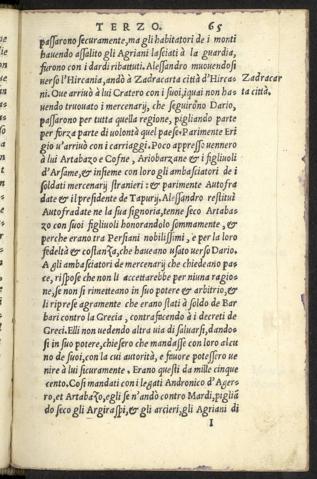 TERZO. 65
passarono securamente, ma gli habitatori de i monti
hauendo assalito gli Agriani lasciati à la guardia,
furono con i dardi ributtati. Alessandro muouendosi
verso l'Hircania, andò à Zadracarta città d'Hirca- Zadracar
ni. Oue arriuò à lui Cratero con i suoi, i quai non ha- ta città.
uendo truouato i mercenarij, che seguirõno Dario,
passarono per tutta quella regione, pigliando parte
per forza parte di uolontà quel paese. Parimente Eri
gio v'arriuò con i carriaggi. Poco appresso uennero
à lui Artabazo e Cofne, Ariobarzane & i figliuoli
d'Arsame, & insieme con loro gli ambasciatori de i
soldati mercenarij stranieri: & parimente Autofra
date & il presidente de Tapurij. Alessandro restituì
Autofradate ne la sua signoria, tenne seco Artaba-
zo con suoi figliuoli honorandolo sommamente, &
perche erano tra Persiani nobilissimi, e per la loro
fedeltà & costanza, che haueano usato verso Dario.
A gli ambasciatori de mercenarij che chiedeano pa-
ce, rispose che non li accettarebbe per niuna ragio-
ne, se non si rimetteano in suo potere & arbitrio, &
li riprese agramente che erano stati à soldo de Bar
bari contro la Grecia, contrafacendo à i decreti de
Greci. Elli non uedendo altra uia di saluarsi, dando-
si in suo potere, chiesero che mandasse con loro alcu
no de suoi, con la cui autorità, e fauore potessero ue
nire à lui sicuramente. Erano questi da mille cinque
cento. Cosi mandati con i legati Andronico d'Ager-
ro, et Artabazo, egli se n'andò contro Mardi, pigliã
do seco gli Argiraspi, & gli arcieri, gli Agriani di
I